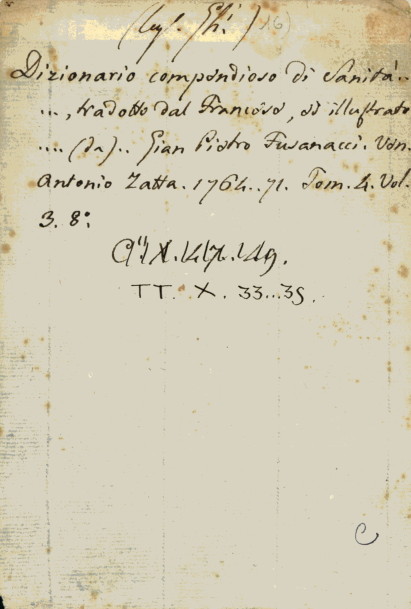 16)
Dizionario compendioso di Sanità..
..., tradotto dal Francese, ed illustrato
.... (da).. Gian Pietro Fusanacci. Ven.
Antonio Zatta. 1764..71. Tom. 4. Vol.
3. 8:
TT. X. 33...35.
C